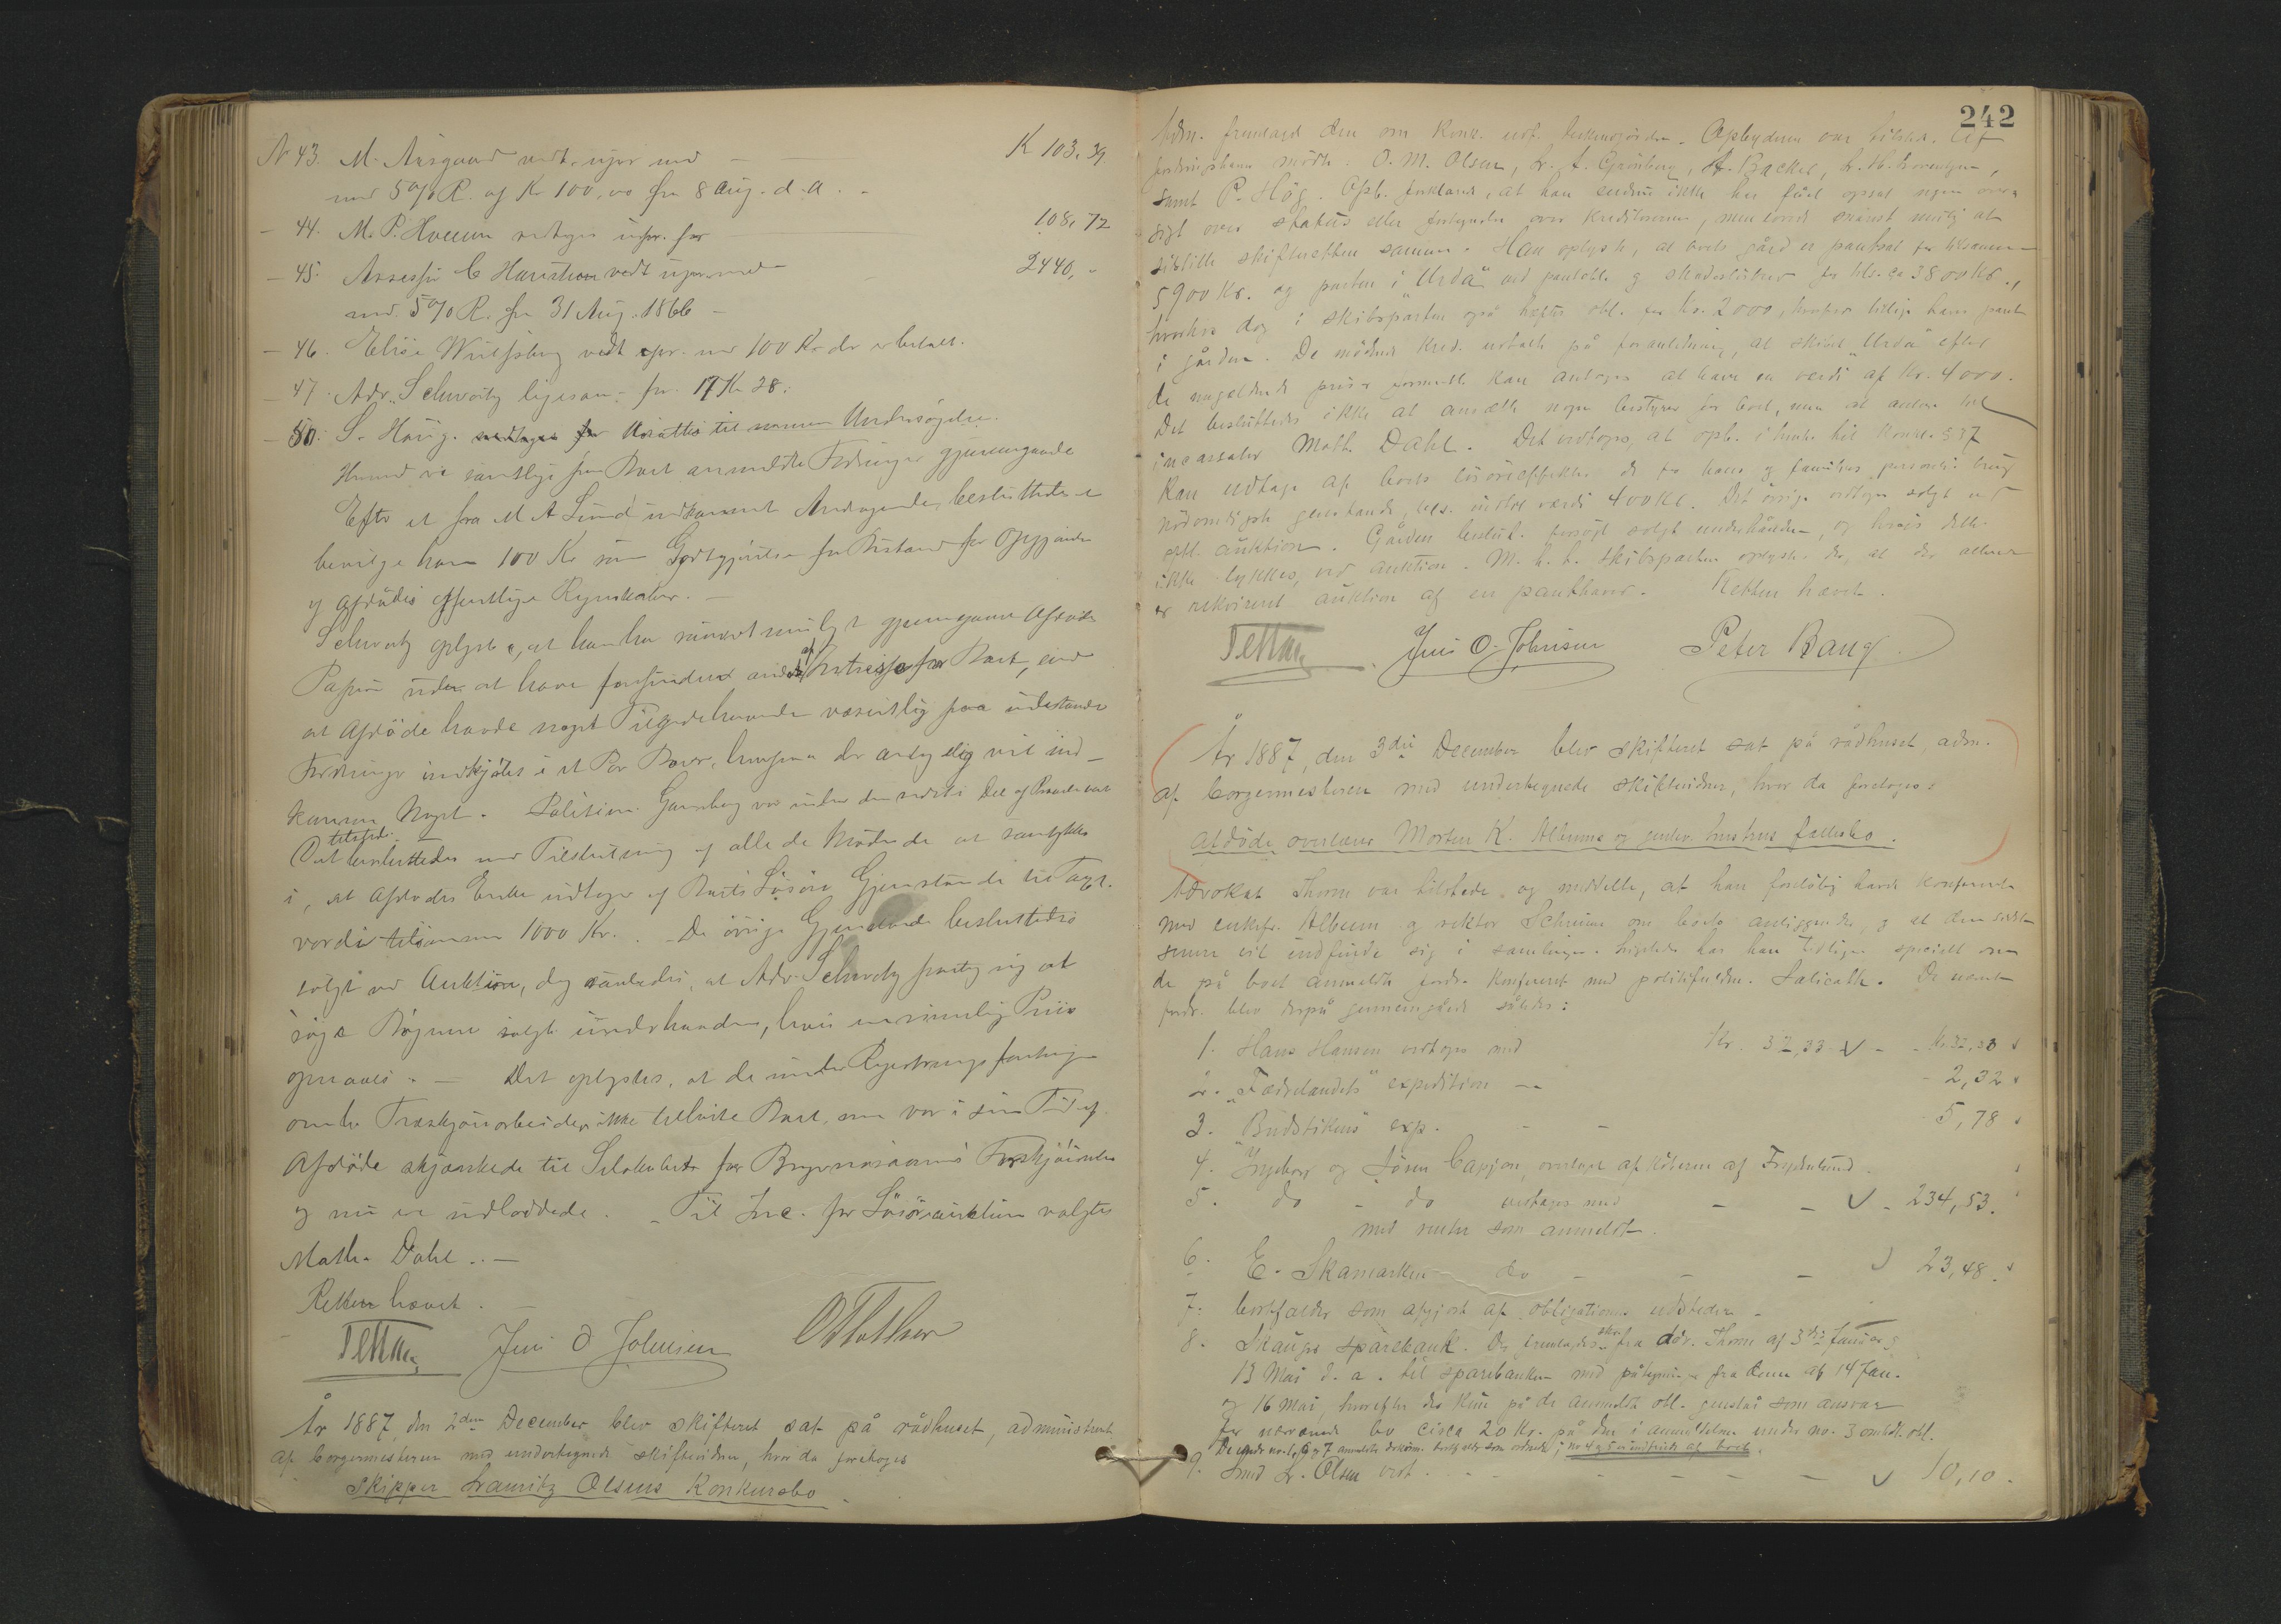 N 43. M. Aasgaard vedt. upr med — K 103. 39
med 5% R. af Kr 100,00 fra 8 Aug. d. A.
- 44. M. P. Hveem vedtages upr. for — 108,72
- 45. Assessor C Harestuen vedt upr. med — 2440,-
med 5% R. fra 31 Aug. 1866 -
- 46. Elise Wulfsberg vedt upr. med 100 Kr der er betalt.
- 47. Adv. Schwartz ligesom for 17 Kr 28.
- S. Haug. udsattes til nærmere Undersøgelse.
Hermed var samtlige i Boet anmeldte Fordringer gjennemgaaede
Efter et fra M A Lund indkommet Andragende besluttedes at
bevilge ham 100 Kr som Godtgjørelse for Bistand for Opgjør
af Afdødes offentlige Regnskaber. -
Schwartz oplyste, at han har saavidt muligt gjennemgaaet Afdødes
Papirer uden at have forefundet andet af Interesse for Boet, end
at Afdøde havde noget Tilgodehavende væsentlig paa udestaaende
Fordringer indkjøbt i et Par Boer, hvorpaa der antagelig vil ind-
komme Noget. Politifm. Gaarberg var under den sidste Del af Mødet
tilstede.
Det besluttedes med Tilslutning af alle de Mødende at samtykke
i, at Afdødes Enke udtager af Boets Løsøre Gjenstande til Taxt-
værdi tilsammen 1000 Kr. De øvrige Gjenstande besluttedes
solgt ved Auktion, dog saaledes, at Adv. Schwartz paatog sig at
søge Bøgerne solgt underhaanden, hvis en rimelig Priis
opnaaes. - Det oplystes, at de under Registreringsforretningen
omh. Træskjærerarbeider ikke tilhørte Boet, men var i sin Tid af
Afdøde skjænkede til
og nu er udloddede. - Til Inc. for Løsøreauktion valgtes
Math. Dahl. -
Retten hævet. -
Jens O Johnsen
År 1887, den 2den December blev skifteret sat på rådhuset, administreret
af borgermesteren med undertegnede skiftevidner, hvor da foretoges
Skipper Lauritz Olsens Konkursbo.
242
Adm. fremlagde den om konk. udst. bekendtgørelse. Opbyderen var tilstede. Af
fordringshavere mødte O. M. Olsen, L. A. Grønberg,
samt P. Høg. Opb. forklarede, at han endnu ikke har fået opsat nogen over-
sigt over status eller fortegnelse over kreditorerne, men lovede snarest mulig at
tilstille skifteretten samme. Han oplyste, at boets gård er pantsat for tilsammen
5900 Kr. og parten i "Urda" ved panteobl. og skadesløsbrev for tils. ca 3800 Kr.,
hvorhos dog i skibsparten også hæfter obl. for kr. 2000, hvorfor tillige haves pant
i gården. De mødende kred. udtalte på foranledning, at skibet "Urda" efter
de nugældende priser formentl. kan antages at have en værdi af Kr. 4000.
Det besluttedes ikke at ansætte nogen bestyrer for boet, men at antage til
incassator Math. Dahl. Det vedtoges, at opb. i henh. til konkl. § 37
kan udtage af boets løsøreeffekter de for hans og families personlige brug
nødvendigste genstande, tils. indtil værdi 400 Kr. Det øvrige vedtoges solgt ved
offtl. auktion. Gården beslut. forsøgt solgt underhånden, og hvis dette
ikke lykkes, ved auktion. M. h. t. skibsparten oplystes der, at der allerede
er rekvireret auktion af en panthaver. Retten hævet.
Jens O. Johnsen Peter Bang
År 1887, den 3die December blev skifteret sat på rådhuset, adm.
af borgermesteren med undertegnede skiftevidner, hvor da foretoges:
afdøde overlærer Morten K. Albums og genlev. hustrus fællesbo.
Advokat Thorne var tilstede og meddelte, at han foreløbig havde konfereret
med enkefr. Album og rektor Schreiner om boets anliggender, og at den sidst-
nævnte vil indfinde sig i samlingen. Ligeledes har han tidligere specielt om
de på boet anmeldte fordr. konfereret med politifuldm. Salicath. De nævnte
fordr. blev derpå gennemgåede således:
1. Hans Hansen vedtoges med Kr. 32,33 ✓ - Kr. 32,33
2. "Fædrelandets" expedition — - 2,32
3. "Budstikkens" exp. - - - 5,78
4. Ingeborg og Søren Cappen,
5. do - do vedtages med - - ✓ - 234,53.
med renter som anmeldt.
6. E. Skamarken do - - - ✓ 23,48.
7. bortfalder som afgjort af obligationens udsteder -
8. Skauger sparebank. Der fremlagdes skr. fra adv. Thorne af 3die Januar og
13 Mai d. a. til sparebanken med påtegning fra denne af 14 Jan.
og 16 Mai, hvorefter der kun på de anmeldte obl. genstår som ansvar
for nærværende bo circa 20 Kr. på den i anmeldelsen under no. 3 omhdl. obl.
De under no. 1, 6 og 7 anmeldte bortfalder som ordnede; no 4 og 5 er indfriede af boet.
9. Smed L. Olsen vedt. - - - - ✓ 10,10.